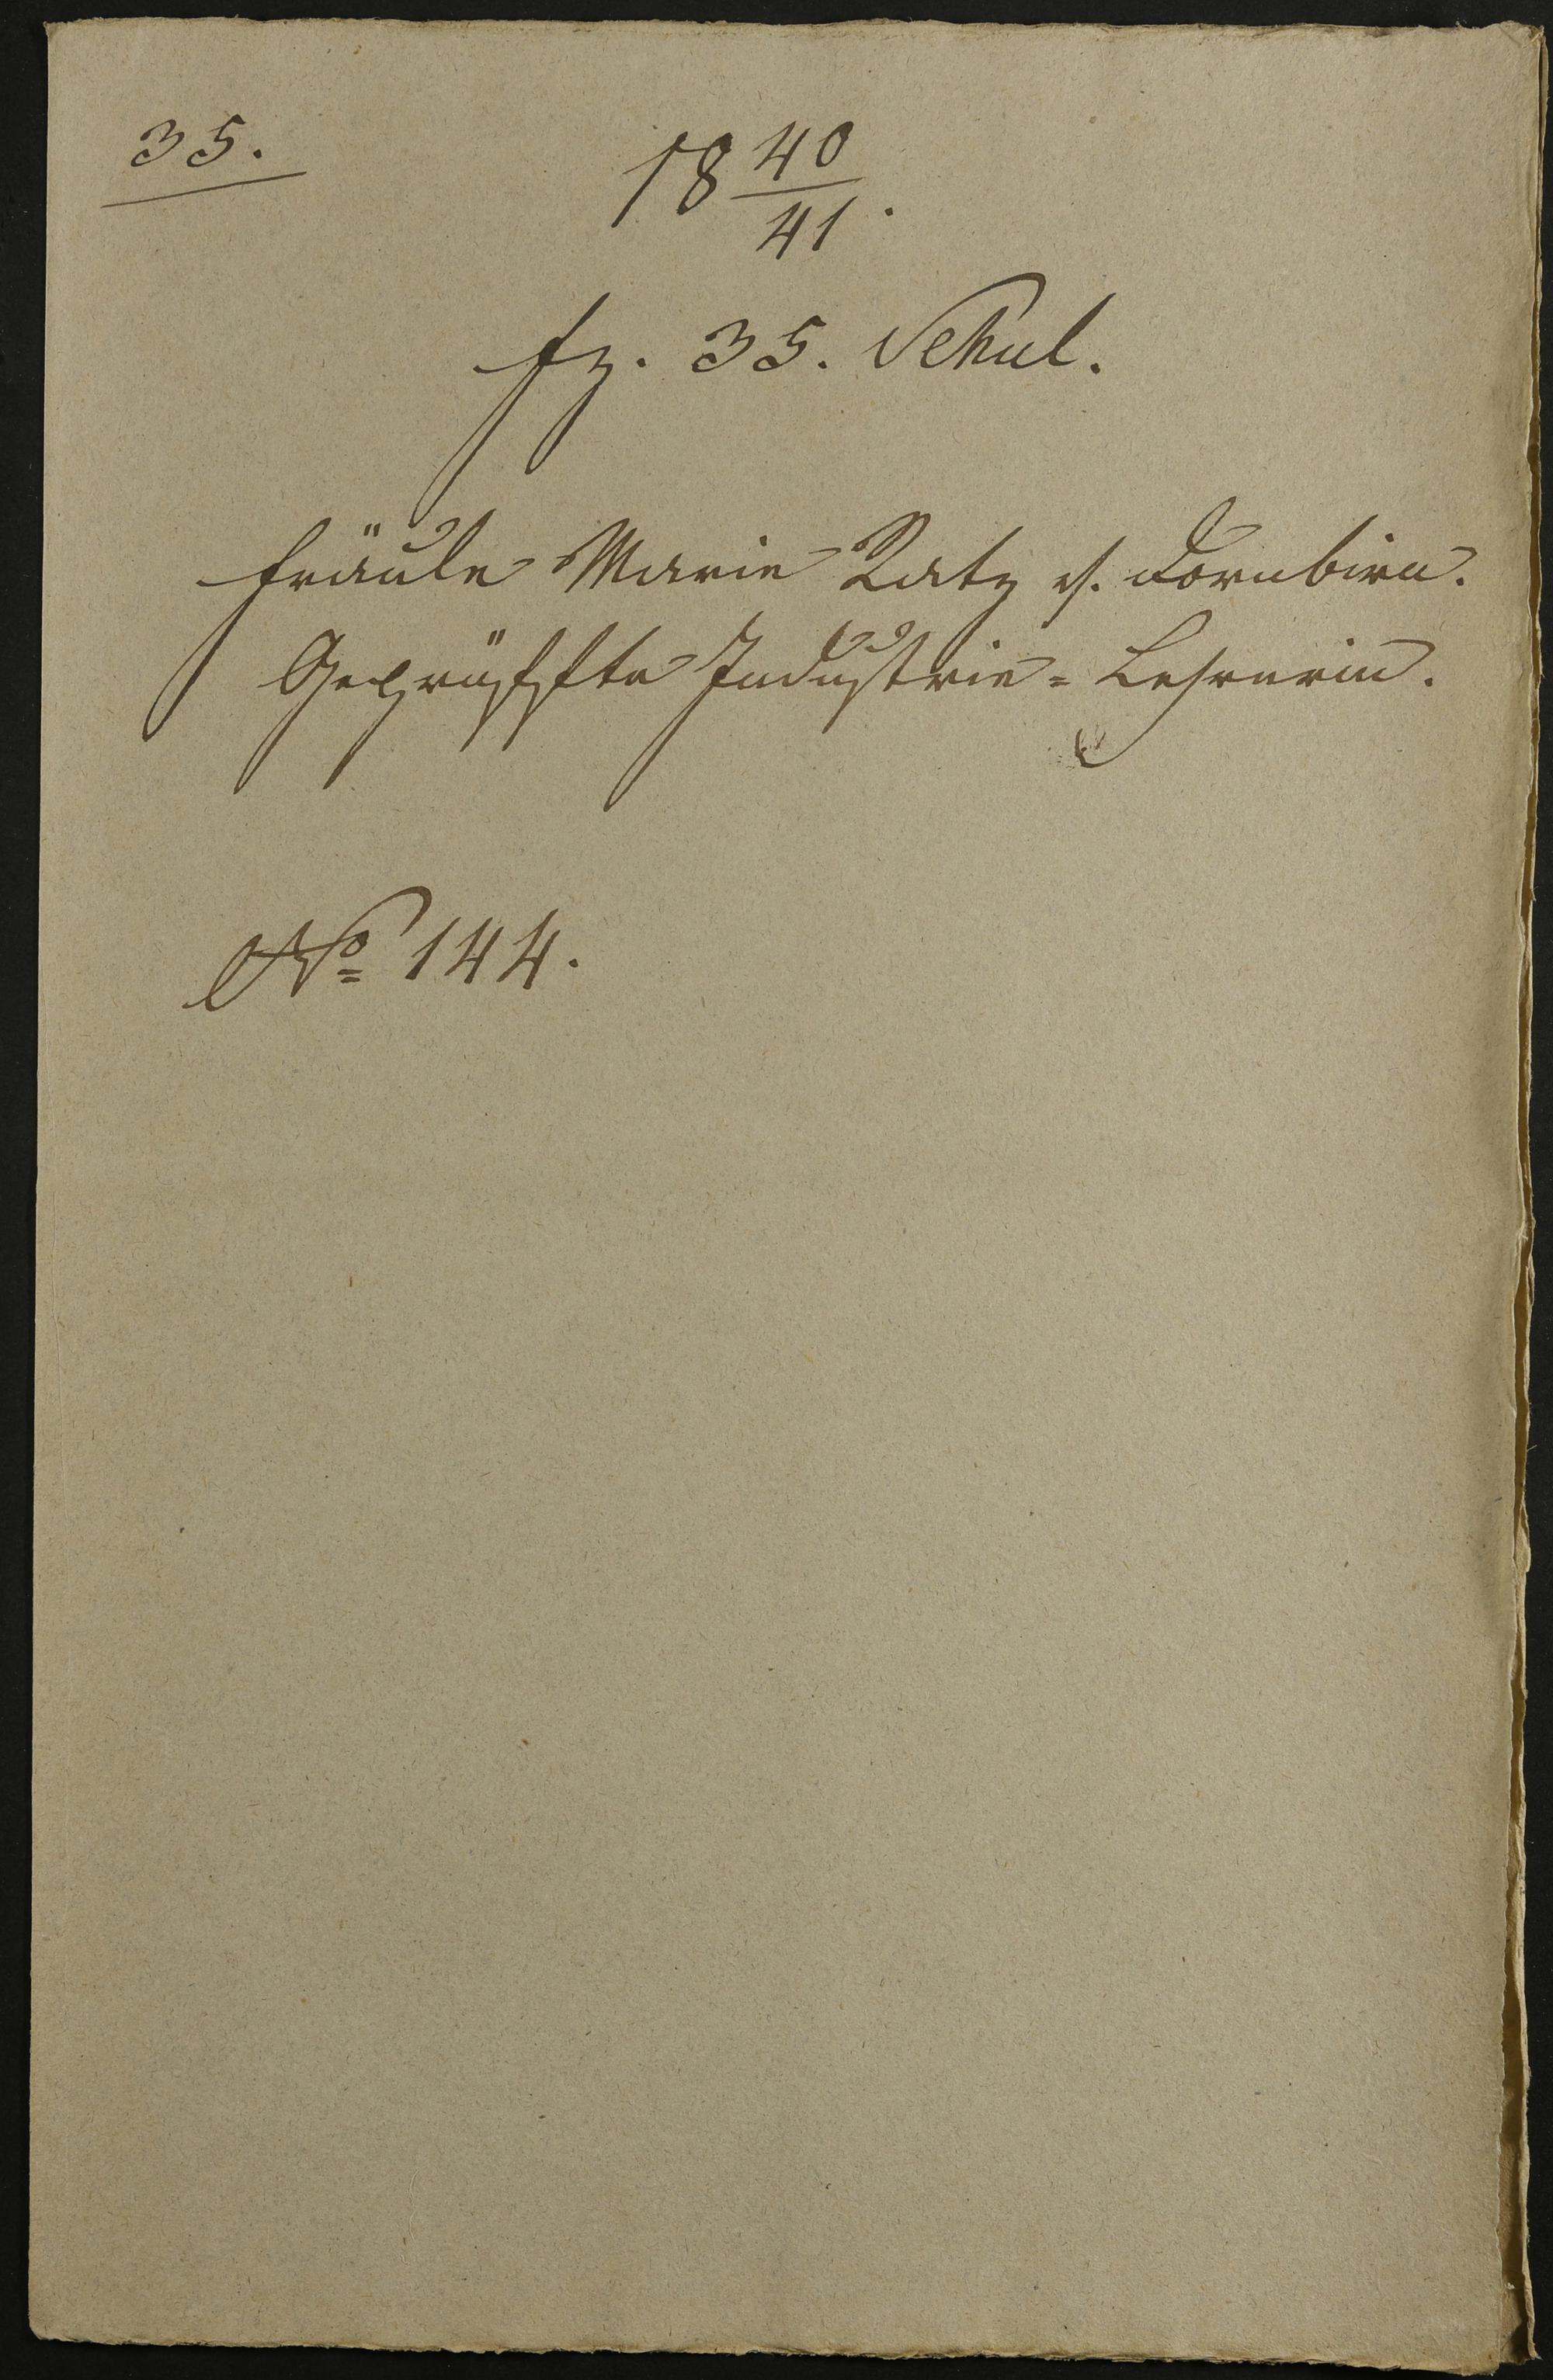 35.
18 40/41.
Fz. 35. Schul.
Fräule Marie Ratz v. Dornbirn.
Geprüffte Industrie-Lehrerin.
No 144.